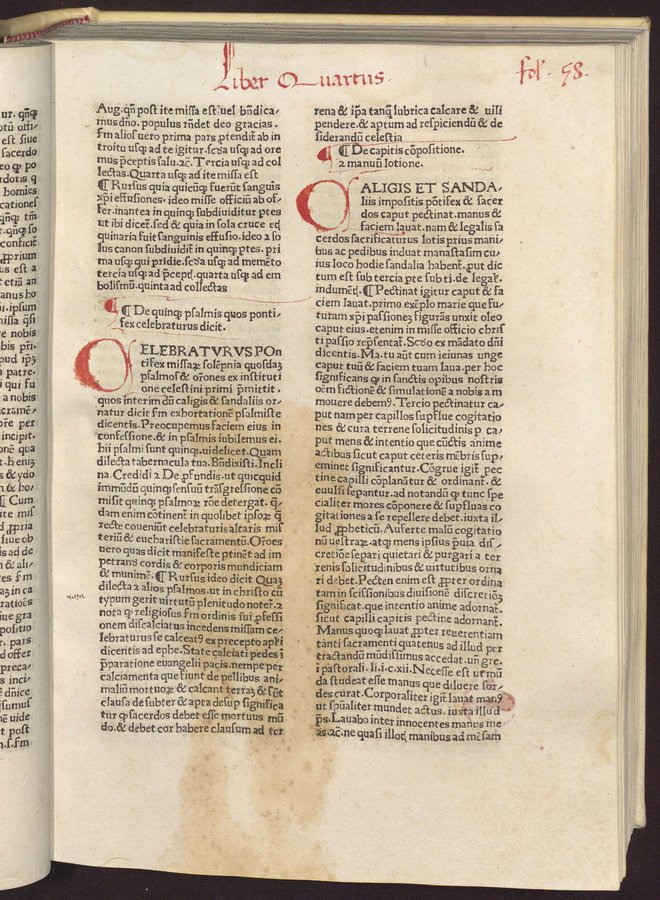 Liber Quartus.
fol. 98.
Aug. qñ post ite missa est: uel bñdica/
mus dño. populus rñdet deo gracias.
fm alios uero prima pars ptendit ab in
troitu usq; ad te igitur. scđa usq; ad ore
mus pceptis salu. ⁊c. Tercia usq; ad col
lectas. Quarta usq; ad ite missa est
¶ Rursus quia quicūq; fuerūt sanguis
xp̄i effusiones. ideo misse officiū ab of/
fer. inantea in quinq; subdiuiditur ptes
ut ibi dicet̄. sed & quia in sola cruce et̄
quinaria fuit sanguinis effusio. ideo ⁊ so
lus canon subdiuidit̄ in quinq; ptes. pri
ma usq; qui pridie. scđa usq; ad memēto
tercia usq; ad p̄cept̄. quarta usq; ad em
bolismū. quinta ad collectas
¶ De quinq; psalmis quos ponti/
fex celebraturus dicit.
CELEBRATVRVS POn
tifex missaꝝ solēpnia quosdaʒ
psalmos & or̄ones ex instituti
one celestini primi p̄mittit.
quos interim dū caligis & sandaliis or/
natur dicit fm exhortationē psalmiste
dicentis. Preocupemus faciem eius in
confessione. & in psalmis iubilemus ei.
hii psalmi sunt quinq;. uidelicet. Quam
dilecta tabernacula tua. Bn̄dixisti. Incli
na. Credidi ⁊ De p̄fundis. ut quicquid
immūdū quinq; sensuū trāsgressione cō
misit quinq; psalmoꝝ rōne detergat. q̄/
dam enim cōtinent in quolibet ipsoꝝ q̄
recte coueniūt celebraturis altaris mis
teriū & eucharistie sacramentū. Or̄oes
uero quas dicit manifeste ptinēt ad im
petrand̄ cordis & corporis mundiciam
& munimē. ¶ Rursus ideo dicit Quaʒ
dilecta ⁊ alios psalmos. ut in christo cū
typum gerit virtutū plenitudo notet̄. ⁊
nota q̄ religiosus fm ordinis sui p̄fessi
onem discalciatus incedens missam ce/
lebraturus se calceat9 ex precepto ap̄li
dicentis ad ephe. State calciati pedes ī
p̄paratione euangelii pacis. nempe per
calciamenta que fiunt de pellibus ani/
maliū mortuoꝝ & calcant terraʒ & sūt
clausa de subter & apta desup significa
tur q̄ sacerdos debet esse mortuus mū
do. & debet cor habere clausum ad ter
nota
rena & ip̄a tanq̄ lubrica calcare & uili
pendere. & aptum ad respiciendū & de
siderandū celestia
¶ De capitis cōpositione.
⁊ manuū lotione.
CALIGIS ET SANDA/
liis impositis pōtifex & sacer
dos caput pectinat. manus &
faciem lauat. nam & legalis sa
cerdos sacrificaturus lotis prius mani/
bus ac pedibus induat manastasim cu/
ius loco hodie sandalia habent̄. put dic
tum est sub tercia pte sub ti. de legał.
indument̄. ¶ Pectinat igitur caput & fa
ciem lauat. primo exēplo marie que fu/
turam xp̄i passionez figurās unxit oleo
caput eius. etenim in misse officio chris
ti passio rep̄sentat̄. Scđo ex mādato dn̄i
dicentis. Ma. tu aūt cum ieiunas unge
caput tuū & faciem tuam laua. per hoc
significans q̄ in sanctis opibus nostris
oēm fictionē & simulationē a nobis a m
mouere debem9. Tercio pectinatur ca/
put nam per capillos supflue cogitatio
nes & cura terrene solicitudinis p ca/
put mens & intentio que cūctis anime
actibus sicut caput ceteris mēbris sup/
eminet significantur. Cōgrue igit̄ pec
tine capilli cōplanāt̄ur & ordinant̄. &
euulsi sepantur. ad notandū q̄ tunc spe
cialiter mores cōponere & supfluas co
gitationes a se repellere debet. iuxta il/
lud p̄pheticū. Auferte malū cogitatio
nū uestraꝝ. atq; mens ipsius p̄uia dis/
cretiōe separi quietari & purgari a ter
renis solicitudinibus & uirtutibus orna
ri debet. Pecten enim est p̄pter ordina
tam in scissionibus diuisionē discretiōʒ
significat. que intentio anime adornat̄.
sicut capilli capitis pectine adornant̄.
Manus quoq; lauat p̄pter reuerentiam
tanti sacramenti quatenus ad illud per
tractandū mūdissimus accedat. un̄ gre.
ī pastorali. li. i. c. xii. Necesse est ut mū
da studeat esse manus que diluere sor/
des curat. Corporaliter igit̄ lauat man9
ut sp̄ualiter mundet actus. iuxta illud
ps. Lauabo inter innocentes manus me
as. ⁊c. ne quasi illot̄ manibus ad mēsam